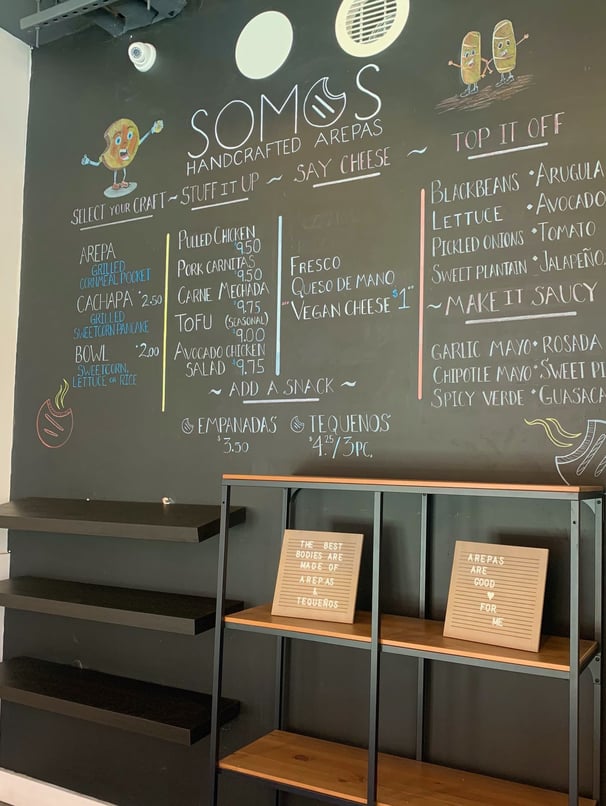 SOMOS
HANDCRAFTED AREPAS
SELECT YOUR CRAFT ~ STUFF IT UP ~ SAY CHEESE ~ TOP IT OFF
AREPA
GRILLED
CORNMEAL POCKET
CACHAPA $2.50
GRILLED
SWEETCORN PANCAKE
BOWL $2.00
SWEETCORN,
LETTUCE OR RICE
PULLED CHICKEN
9.50
PORK CARNITAS
$9.50
CARNE MECHADA
$9.75
TOFU (SEASONAL)
$9.00
AVOCADO CHICKEN
SALAD $9.75
FRESCO
QUESO DE MANO
VEGAN CHEESE $1
BLACKBEANS • ARUGULA
LETTUCE • AVOCADO
PICKLED ONIONS • TOMATO
SWEET PLANTAIN • JALAPEÑO
~ MAKE IT SAUCY
GARLIC MAYO • ROSADA
CHIPOTLE MAYO • SWEET PI
SPICY VERDE • GUASACA
~ ADD A SNACK ~
EMPANADAS TEQUENOS
$3.50 $4.25/3PC.
THE BEST
BODIES ARE
MADE OF
AREPAS
&
TEQUEÑOS
AREPAS
ARE
GOOD
♥
FOR
ME